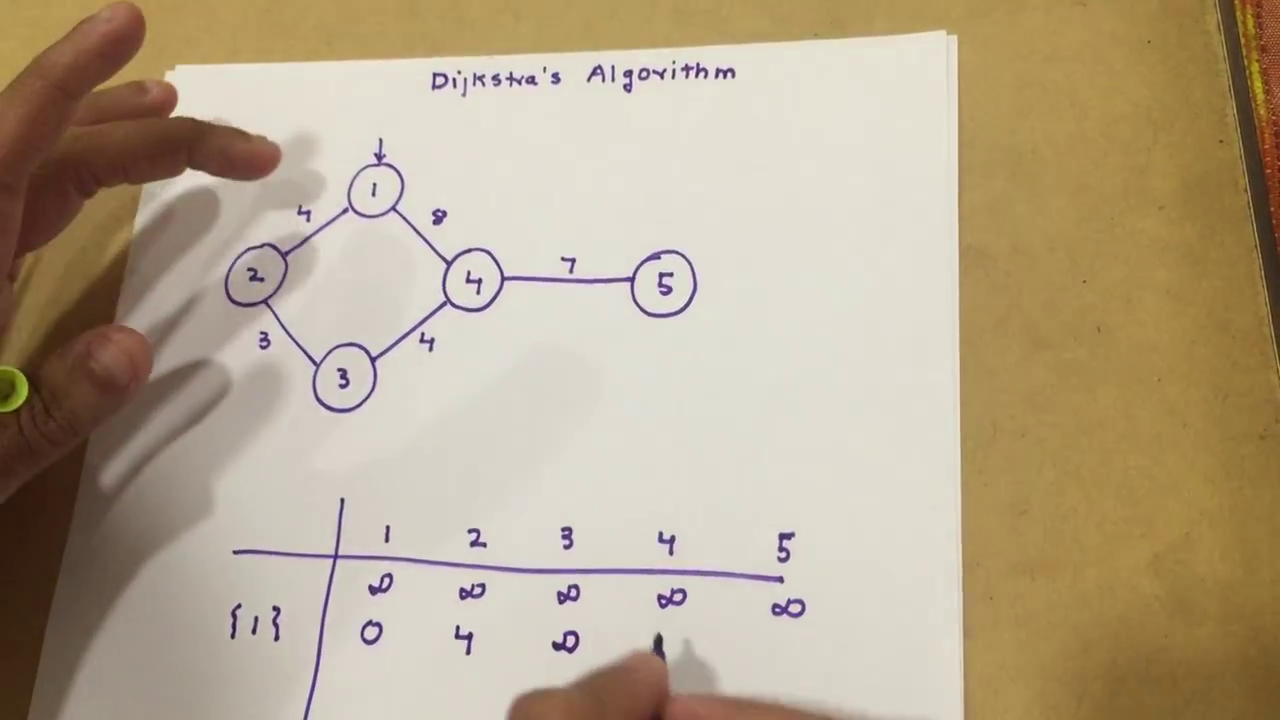 Dijkstra's Algorithm
1
4 8
2 4 7 5
3 4
3
1 2 3 4 5
∞ ∞ ∞ ∞ ∞
{1} 0 4 ∞